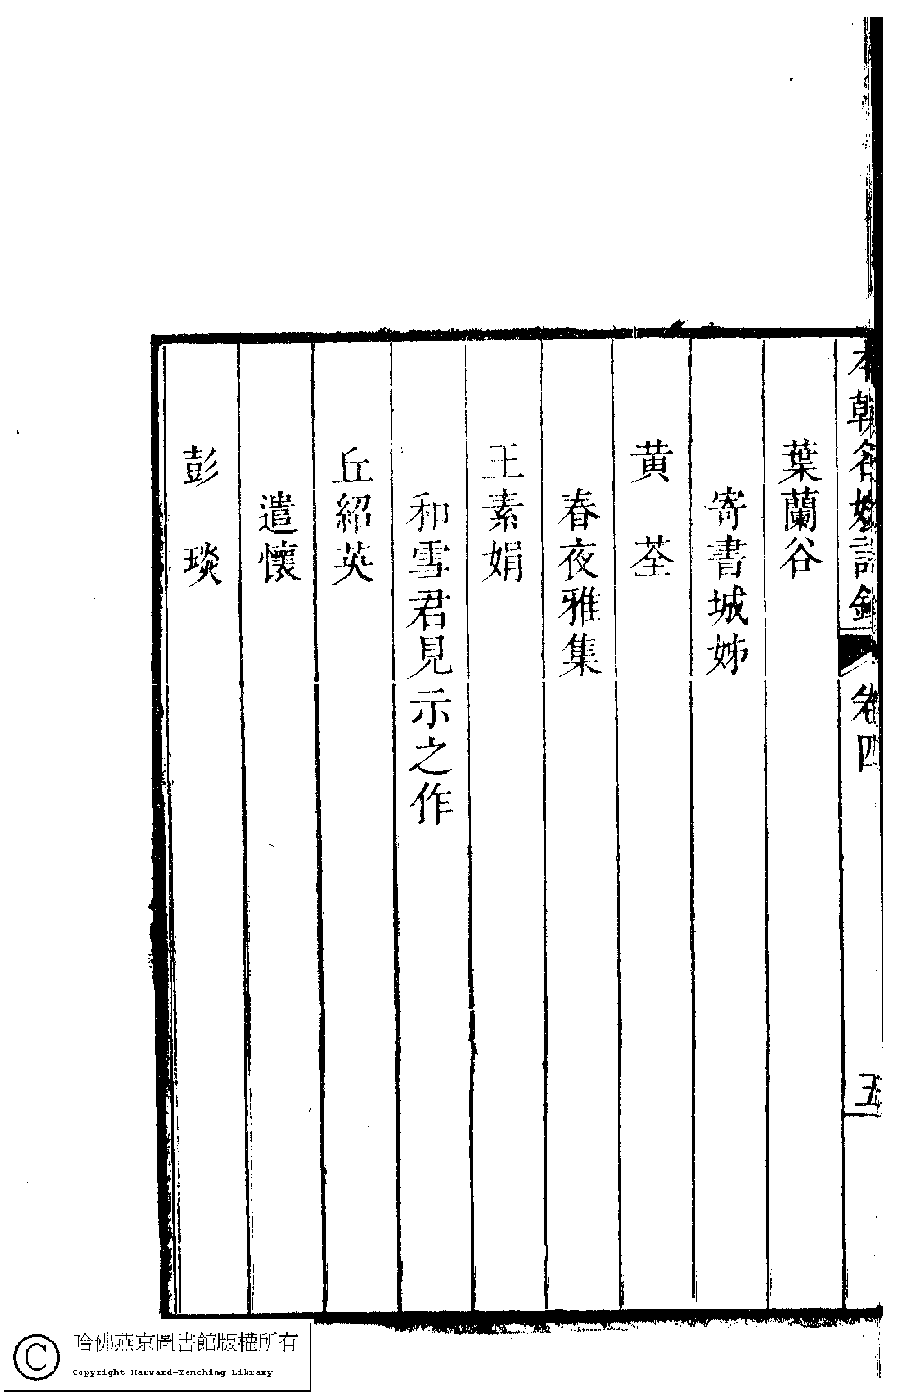 本朝名媛詩鈔 卷四 五
葉蘭谷
寄書城姊
黃荃
春夜雅集
王素娟
和雪君見示之作
丘紹英
遣懷
彭琰
哈佛燕京圖書館版權所有
Copyright Harvard-Yenching Library